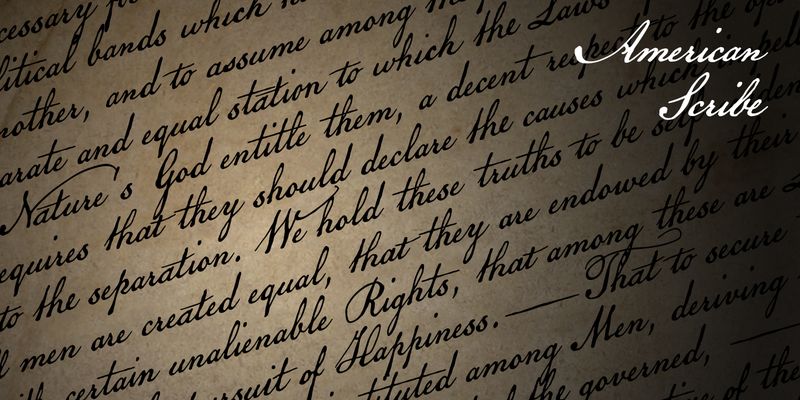 American
Scribe
political bands which
another, and to assume among the
separate and equal station to which the Laws
Nature's God entitle them, a decent respect to the
requires that they should declare the causes which
to the separation. We hold these truths to be self
men are created equal, that they are endowed by their
certain unalienable Rights, that among these are
pursuit of Happiness. — That to secure
among Men, deriving
the governed, —
of the